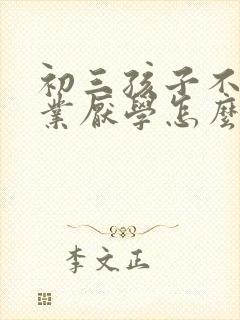 初三孩子不
業厭學怎麽
李文正